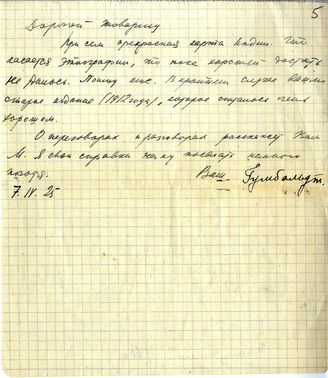 5
Дорогой товарищ
При сем прекрасная карта Индии. Что
касается этнографии, то пока хорошей достать
не удалось. Поищу еще. В крайнем случае вышлю
старое издание (1912 года), которое осталось очень
хорошим.
О переговорах и разговорах расскажет Вам
М. Я свои справки начну посылать немного
погодя.
Ваш Гумбольдт.
7.IV.25